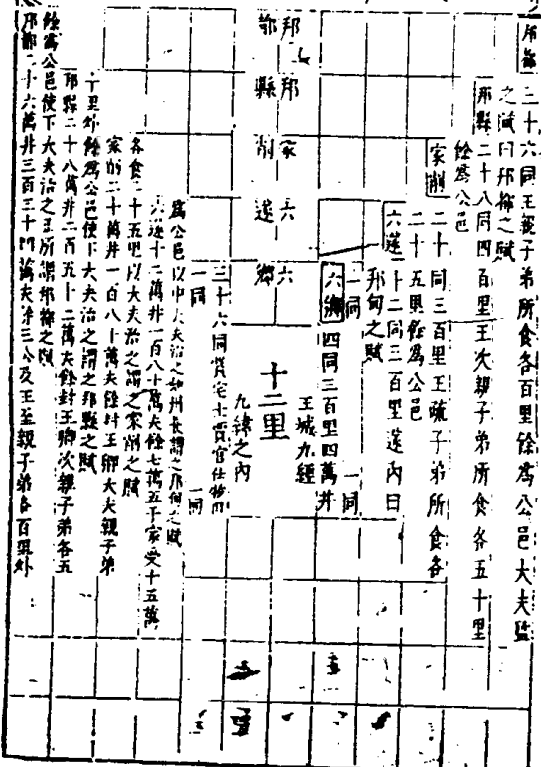 邦都三十六同王親子弟所食各百里餘爲公邑大夫監
之賦曰邦都之賦
邦縣二十八同四百里王次親子弟所食各五十里
餘爲公邑
家削二十同三百里王疏子弟所食各
二十五里餘爲公邑
六遂十二同三百里遂內曰
邦甸之賦
一同 一同
六鄉四同三百里四萬井
王城九經
邦邦家六六
都縣削遂鄉
十二里
九緯之內
三十六同
一同 一同
爲公邑以中大夫治之如州長謂之邦甸之賦
六遂十二萬井一百八十萬夫餘七萬五千家受十五萬
各食二十五里以大夫治之謂之家削之賦
家削二十萬井一百八十萬夫餘封王卿大夫親子弟
十里外餘爲公邑使下大夫治之謂之邦縣之賦
邦縣二十八萬井二百五十二萬夫餘封王卿次親子弟各五
餘爲公邑使下大夫治之王所謂邦都之賦
邦都三十六萬井三百三十四萬夫除三公及王至親子弟各百里外